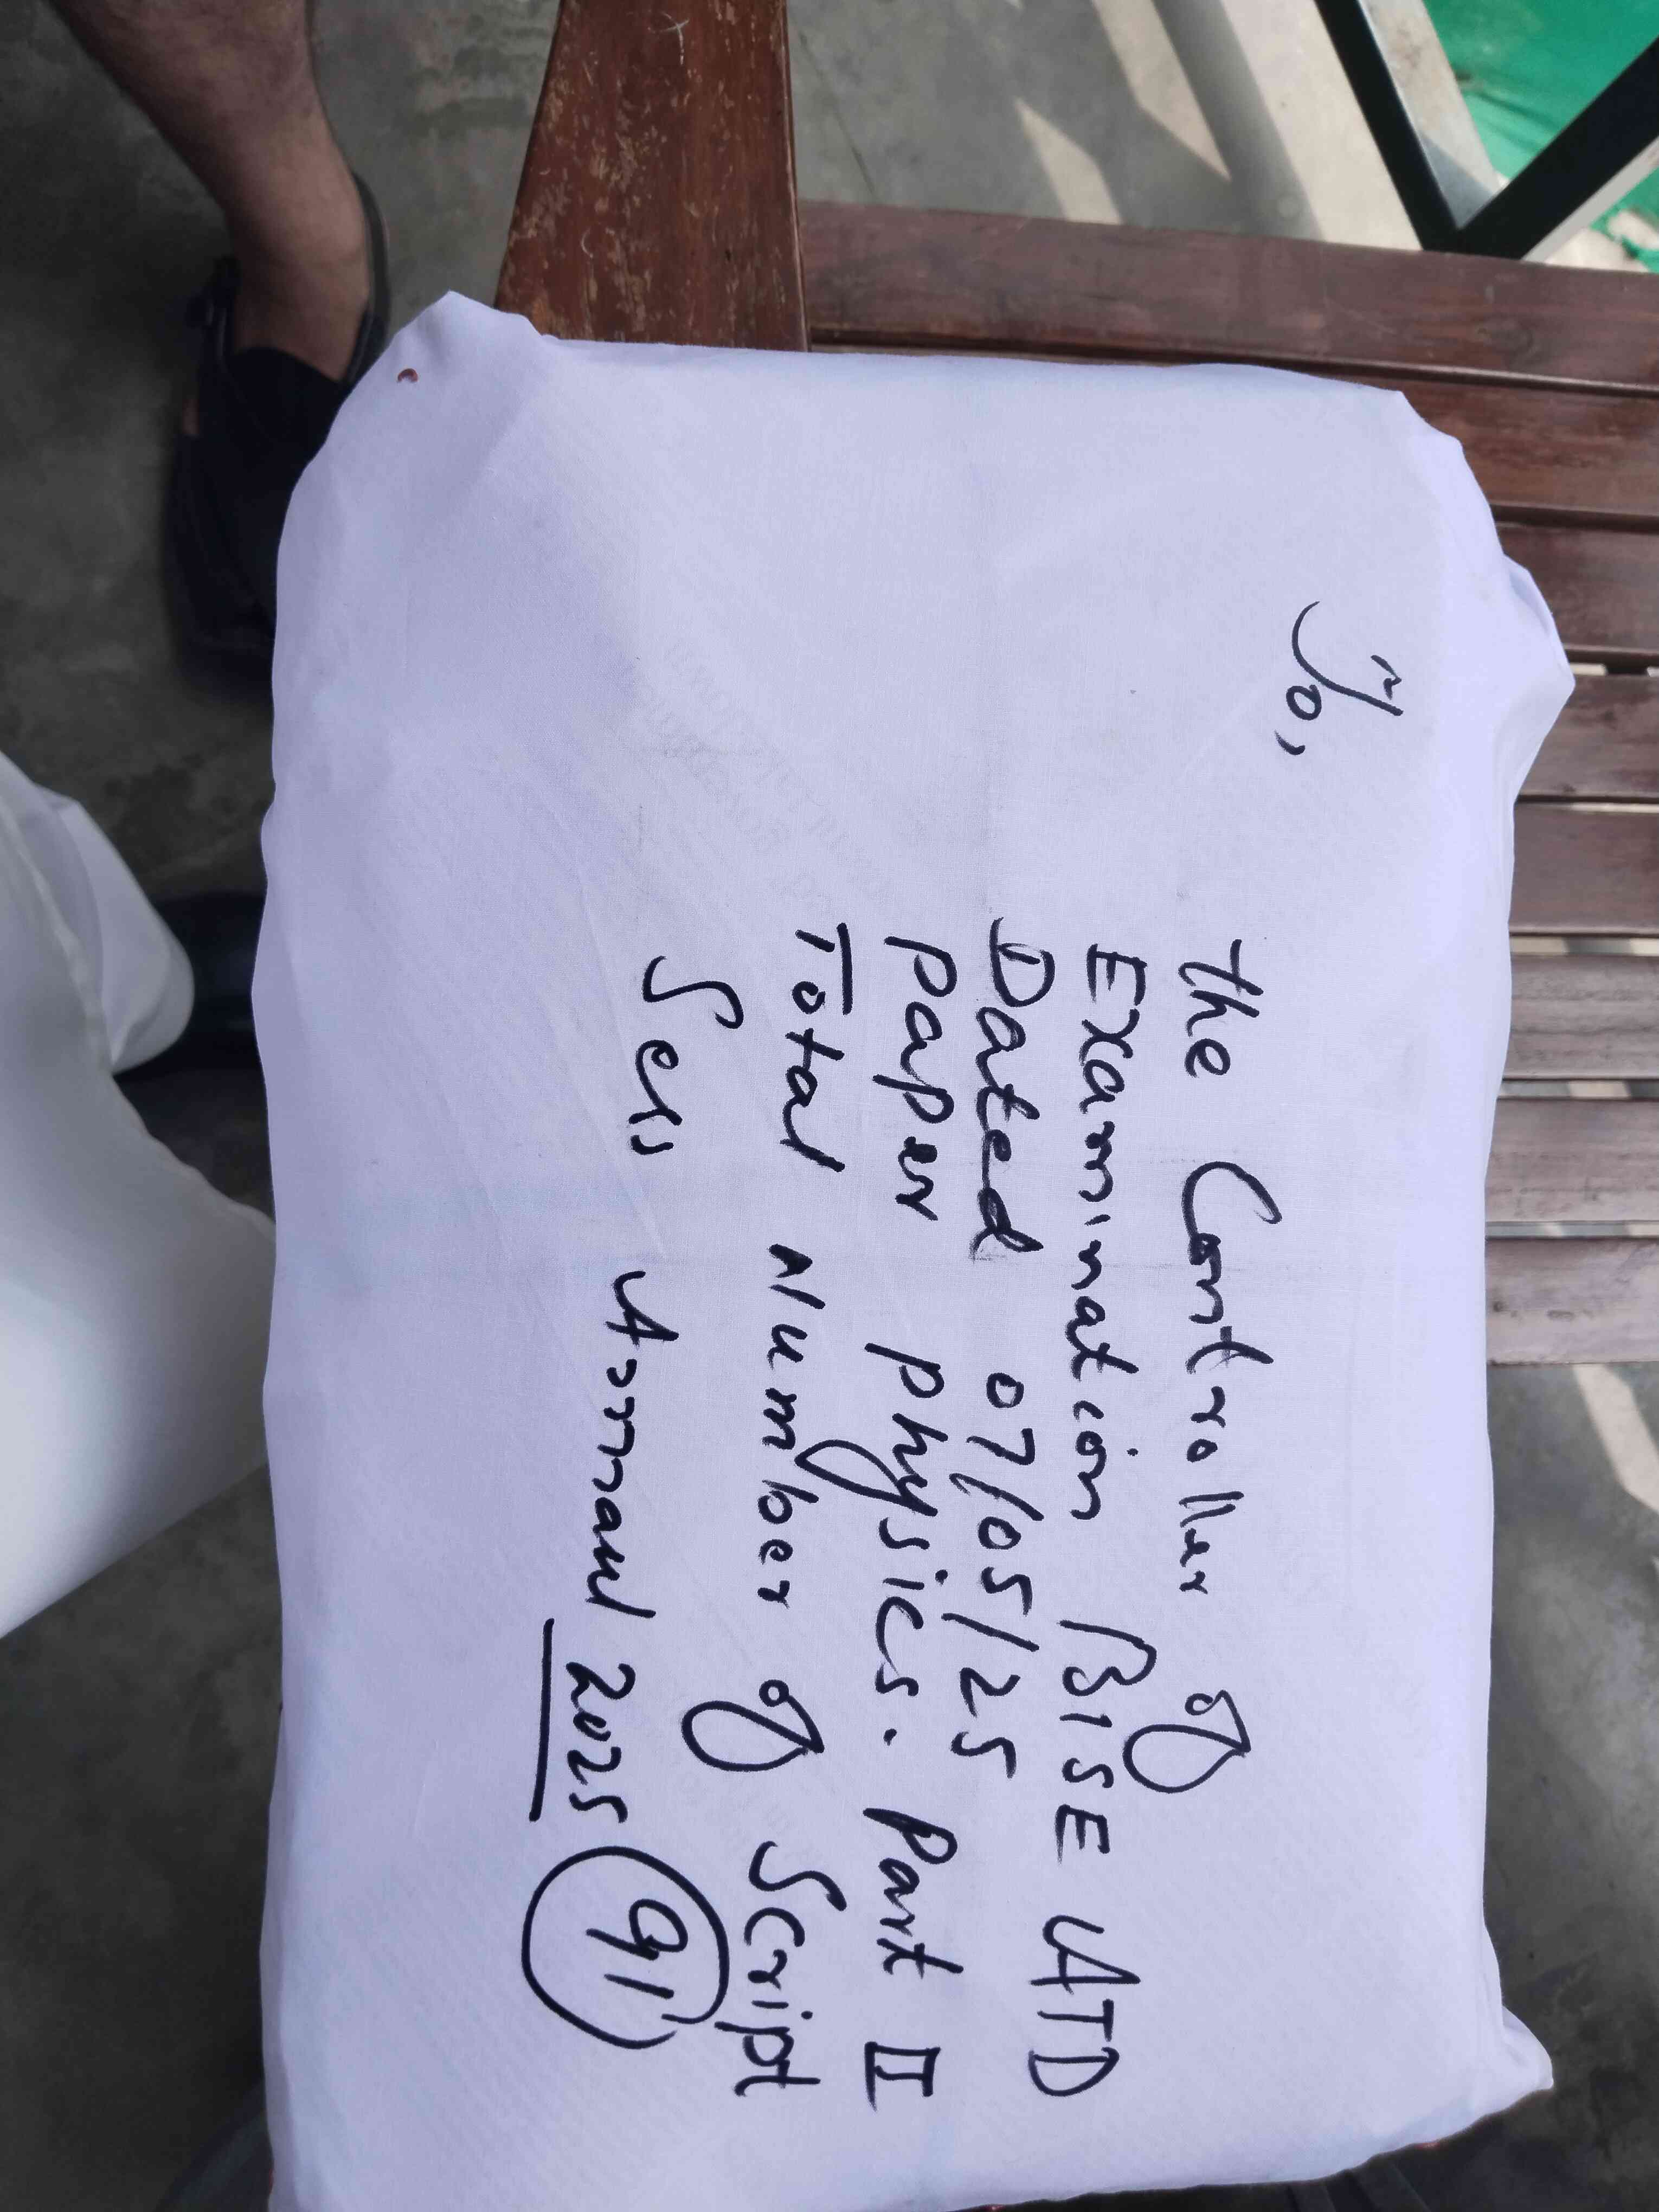 To,
the Controller of
Examination BISE ATD
Dated 07/05/25
Paper Physics. Part II
Total Number of Script
Sess Annual 2025 91